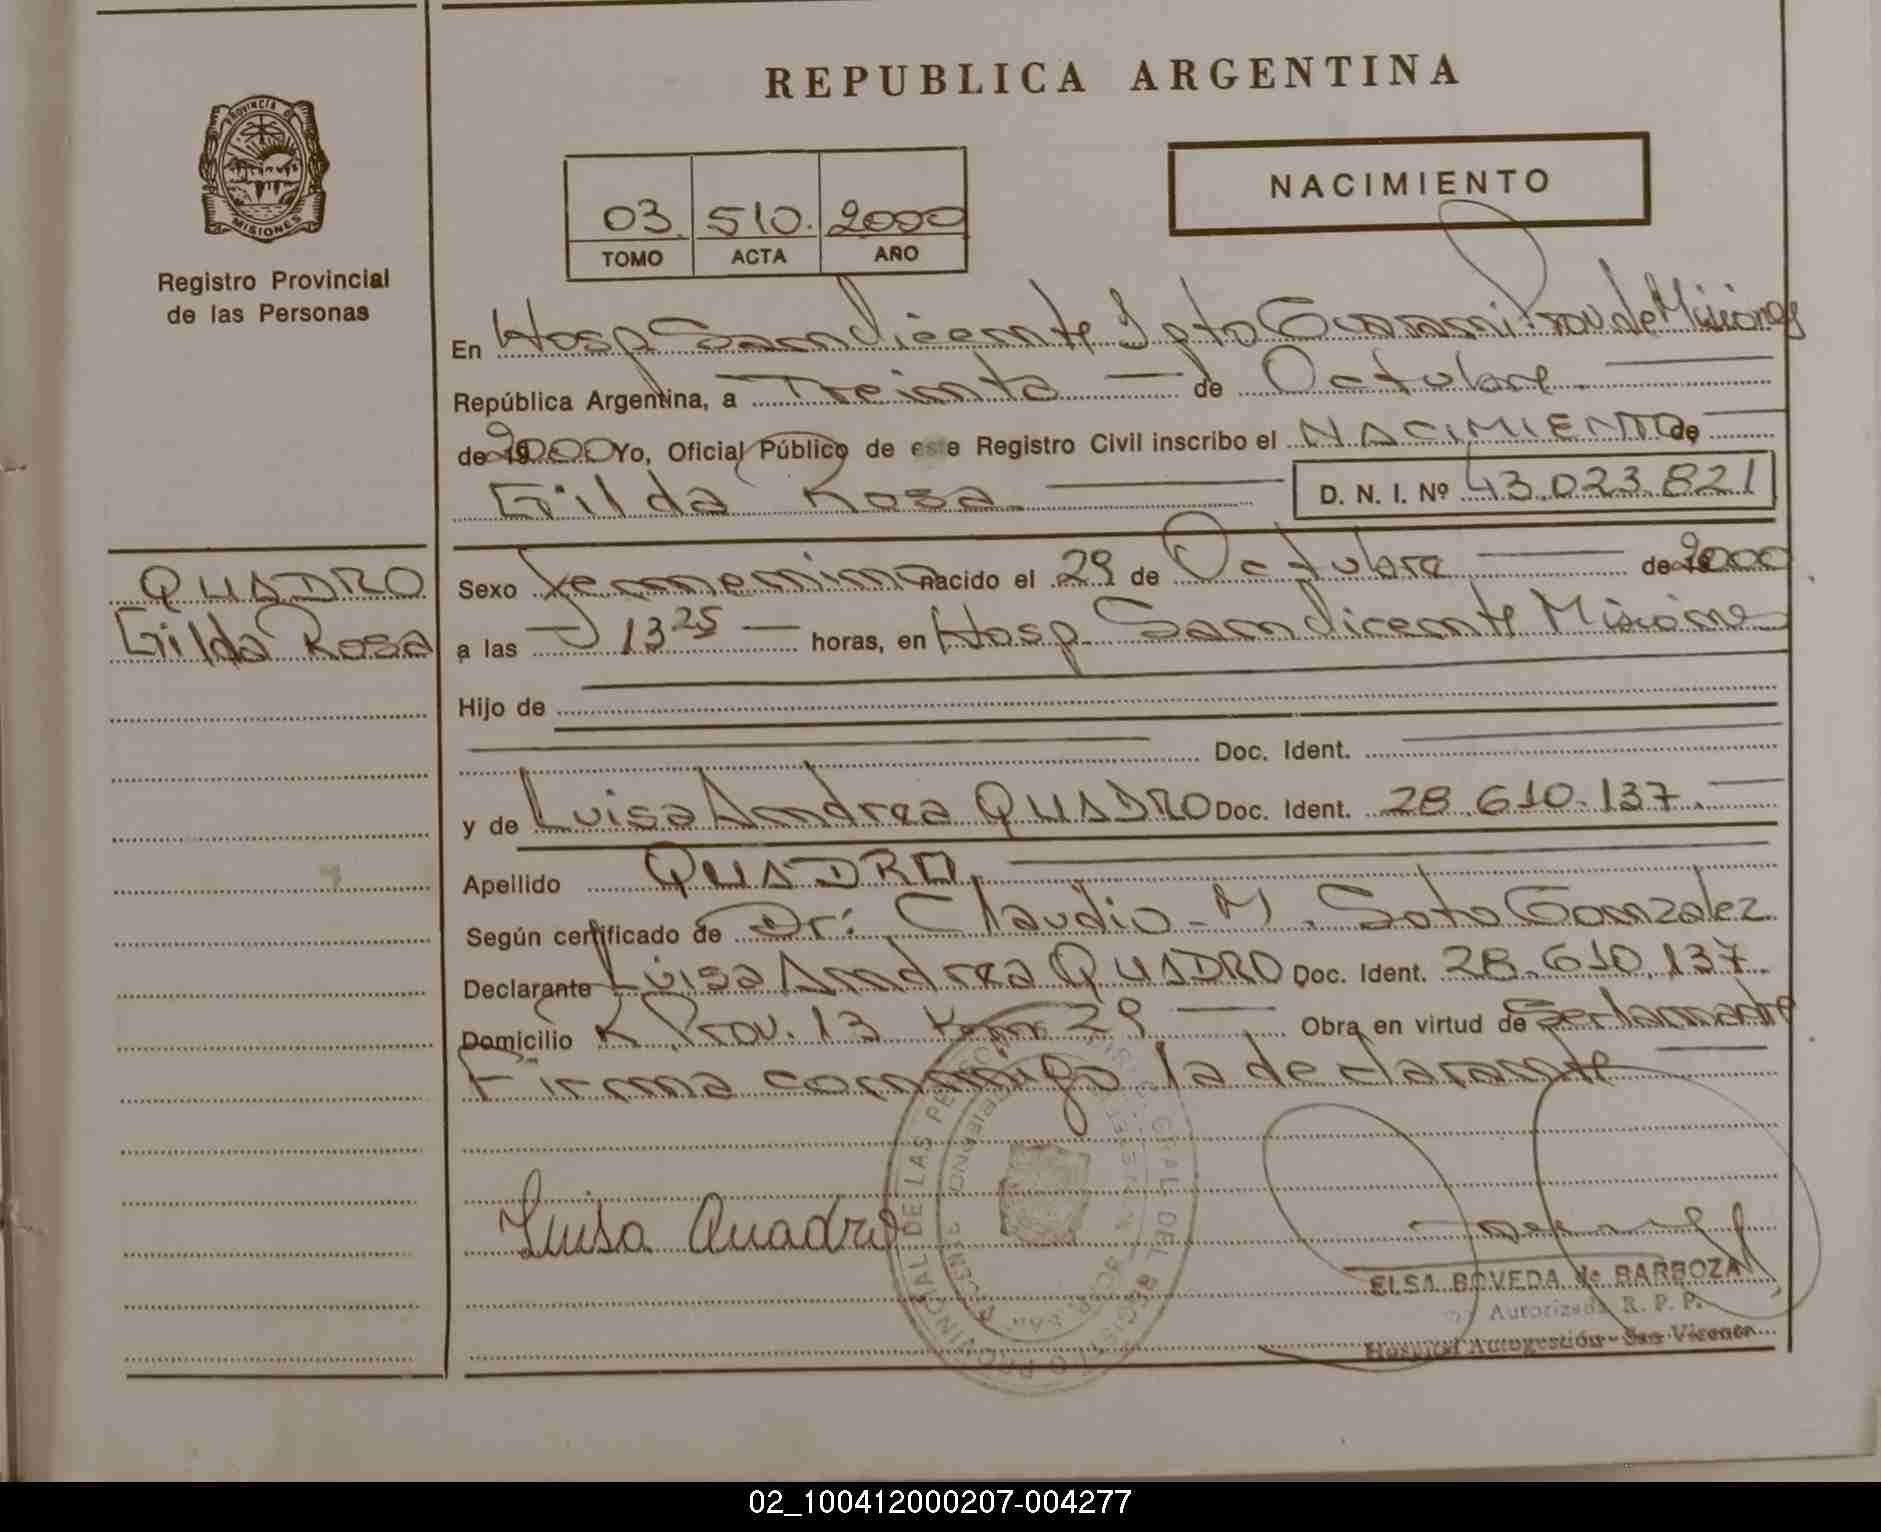 REPUBLICA ARGENTINA
PROVINCIA DE
MISIONES
Registro Provincial
de las Personas
03. 510. 2000
TOMO ACTA AÑO
NACIMIENTO
En Hosp San Vicente Dpto Guarani Prov. de Misiones
República Argentina, a Treinta de Octubre
de 2000 Yo, Oficial Público de este Registro Civil inscribo el NACIMIENTO de
Gilda Rosa D. N. I. Nº 43.023.821
QUADRO
Gilda Rosa
Sexo Femenino nacido el 29 de Octubre de 2000
a las 13 25 horas, en Hosp San Vicente Misiones
Hijo de
Doc. Ident.
y de Luisa Andrea QUADRO Doc. Ident. 28.610.137
Apellido QUADRO
Según certificado de Dr: Claudio M. Soto Gonzalez
Declarante Luisa Andrea QUADRO Doc. Ident. 28.610.137
Domicilio R. Prov. 13 Km 29 Obra en virtud de Ser la madre
Firma conmigo la declarante
Luisa Quadro
ELSA BOVEDA de BARBOZA
Autorizada R. P. P.
Hospital Autogestión - San Vicente
02_100412000207-004277